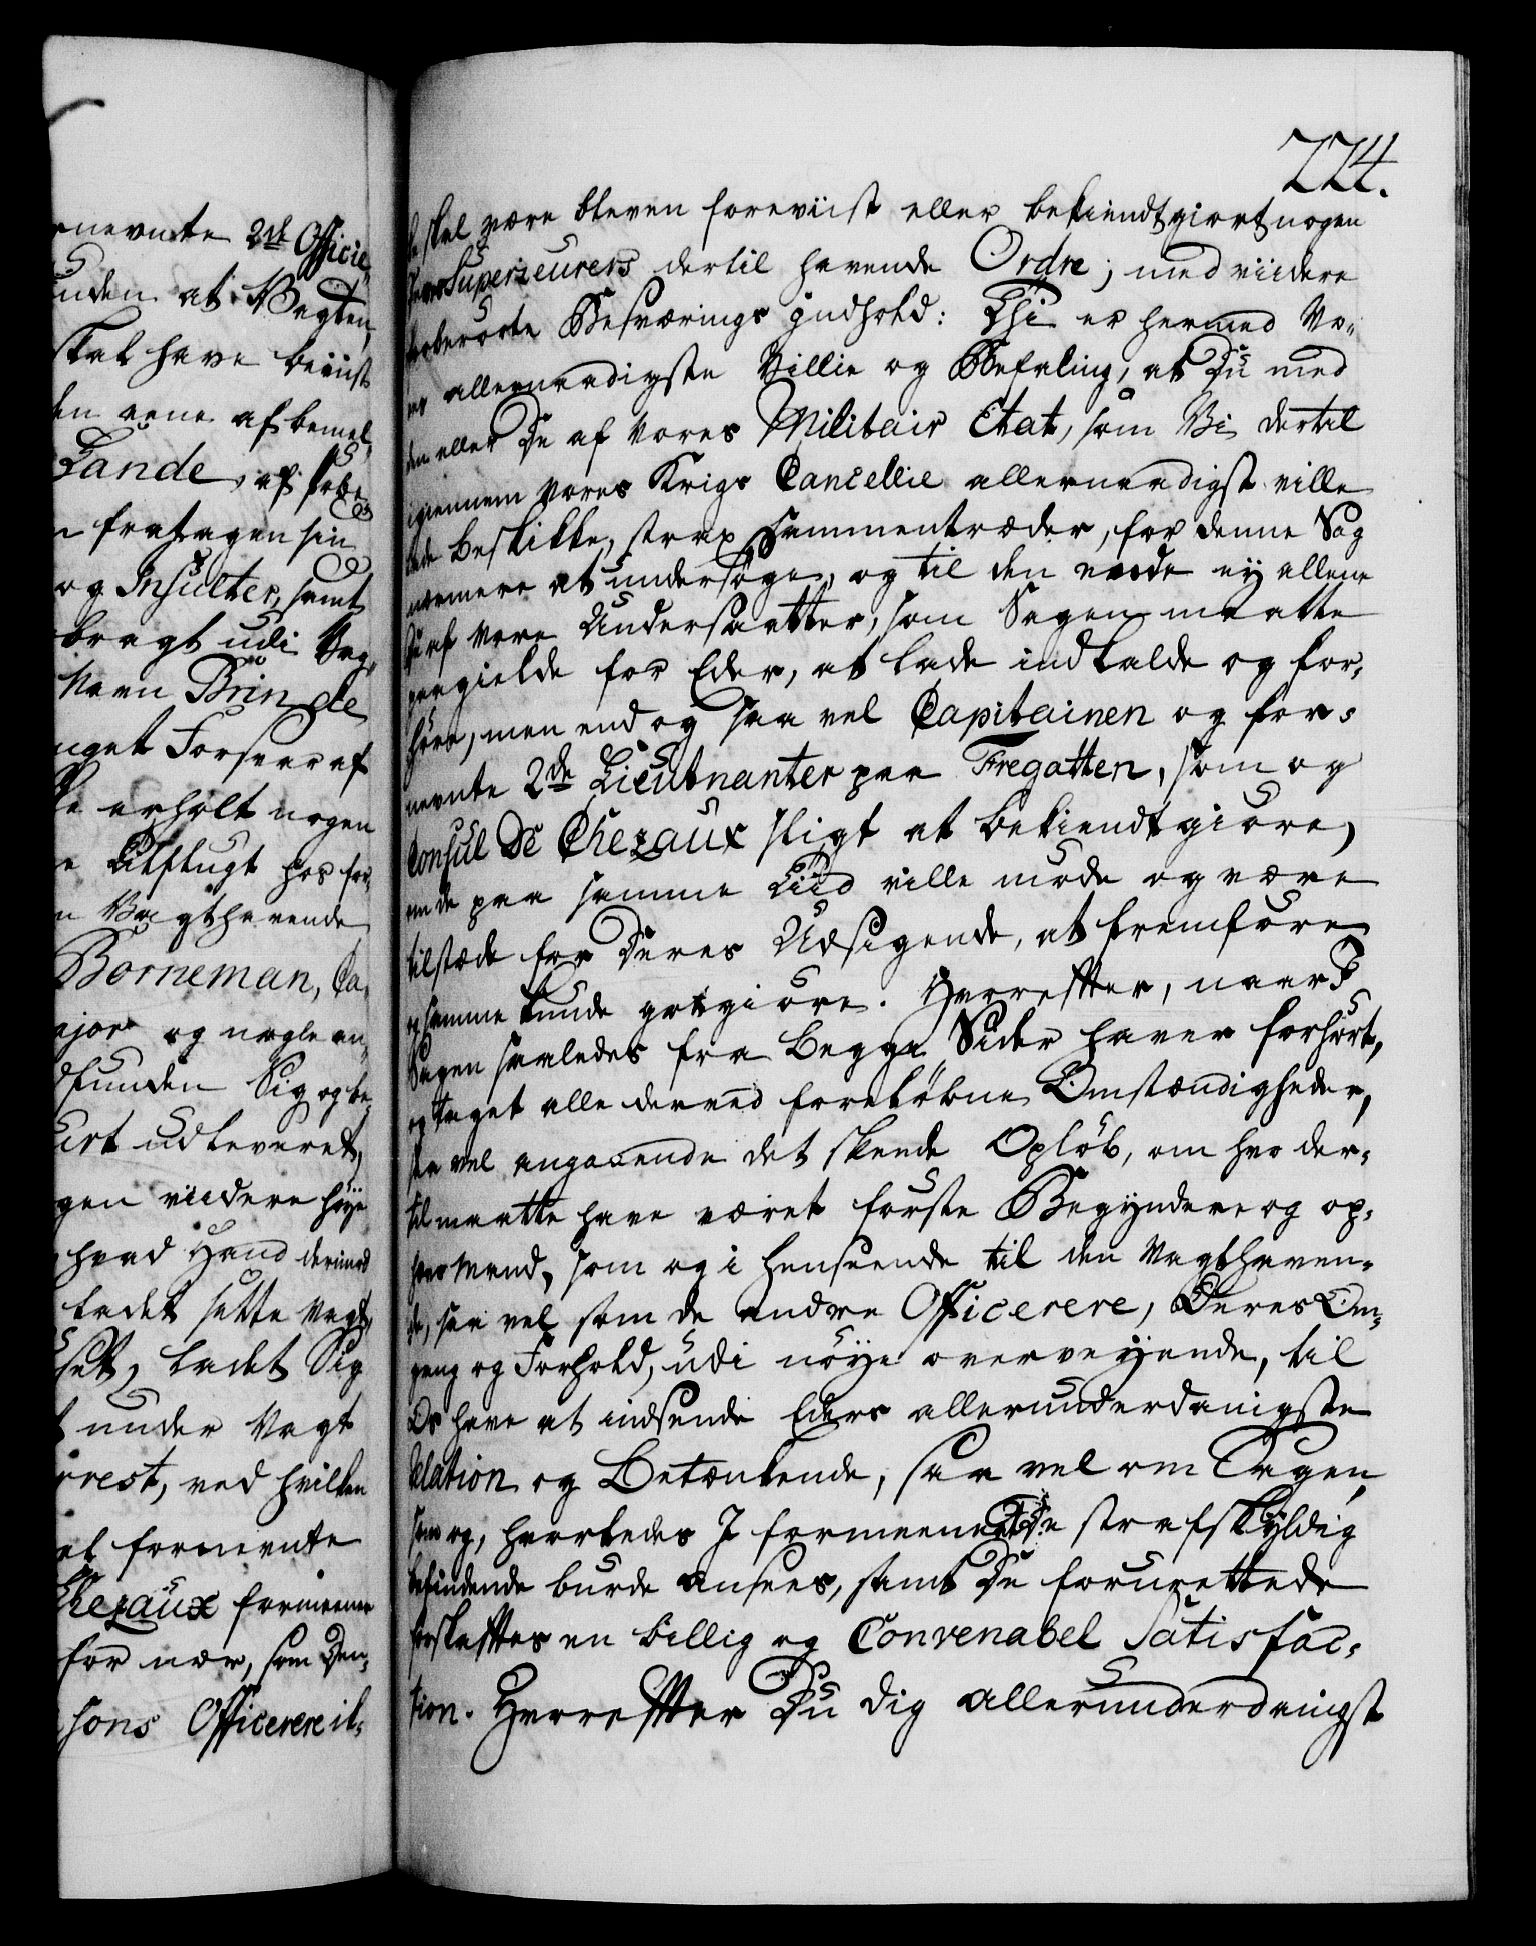 224.
nevnte 2de Officie-
uden at Vagten,
skal have beviist
den eene af bemel-
Lande, af
fratagen sin
og Insulter, samt
bragt udi Vag-
Navn Brin de
noget Forsvar af
erholt nogen
Tilflugt hos for-
Vagthavende
Borneman, Ca-
major og nogle an-
dfunden Sig og be-
udleveret,
gen viidere høye
hvad Hand derimod
ladet sette Vagt
ladet Sig
under Vagt
rrest, ved hvilken
at fornevnte
Chezaux formeener
for nær, som Den-
sons Officerere il-
skal være bleven foreviist eller bekiendtgiort nogen
Superieurers dertil havende Ordre; med viidere
berørte Besværings Indhold: Thi er hermed Vo-
res allernaadigste Villie og Befaling, at Du med
den eller De af Vores Militair Etat, som Vi dertil
igiennem Vores Krigs Cancellie allernaadigst ville
lade beskikke, strax sammentræder, for denne Sag
nærmere at undersøge, og til den ende ey allene
De af Vore Undersaatter, som Sagen maatte
paagielde for Eder, at lade indkalde og for-
høre, men end og saa vel Capitainen og for-
nevnte 2de Lieutnanter paa Fregatten, som og
Consul De Chezaux sligt at bekiendtgiøre,
om de paa samme Tiid ville møde og være
tilstæde for Deres Udsigende, at fremføre
og samme kunde godtgiøre. Hvorefter, naar I
Sagen saaledes fra begge Sider haver forhørt,
og taget alle derved foreløbne Omstændigheder,
saa vel angaaende det skeede Opløb, om hvo der-
til maatte have været første Begyndere og op-
hovs Mænd, som og i henseende til den Vagthaven-
de, saa vel som de andre Officerere, Deres Om-
gang og Forhold, udi nøye overveyende, til
Os have at indsende Eders allerunderdanigste
Relation og Betænkende, saa vel om Sagen,
som og, hvorledes I formeener de strafskyldig
befindende burde ansees, samt De forurettede
forskaffes en billig og Convenabel Satisfac-
tion. Hvorefter Du dig allerunderdanigst